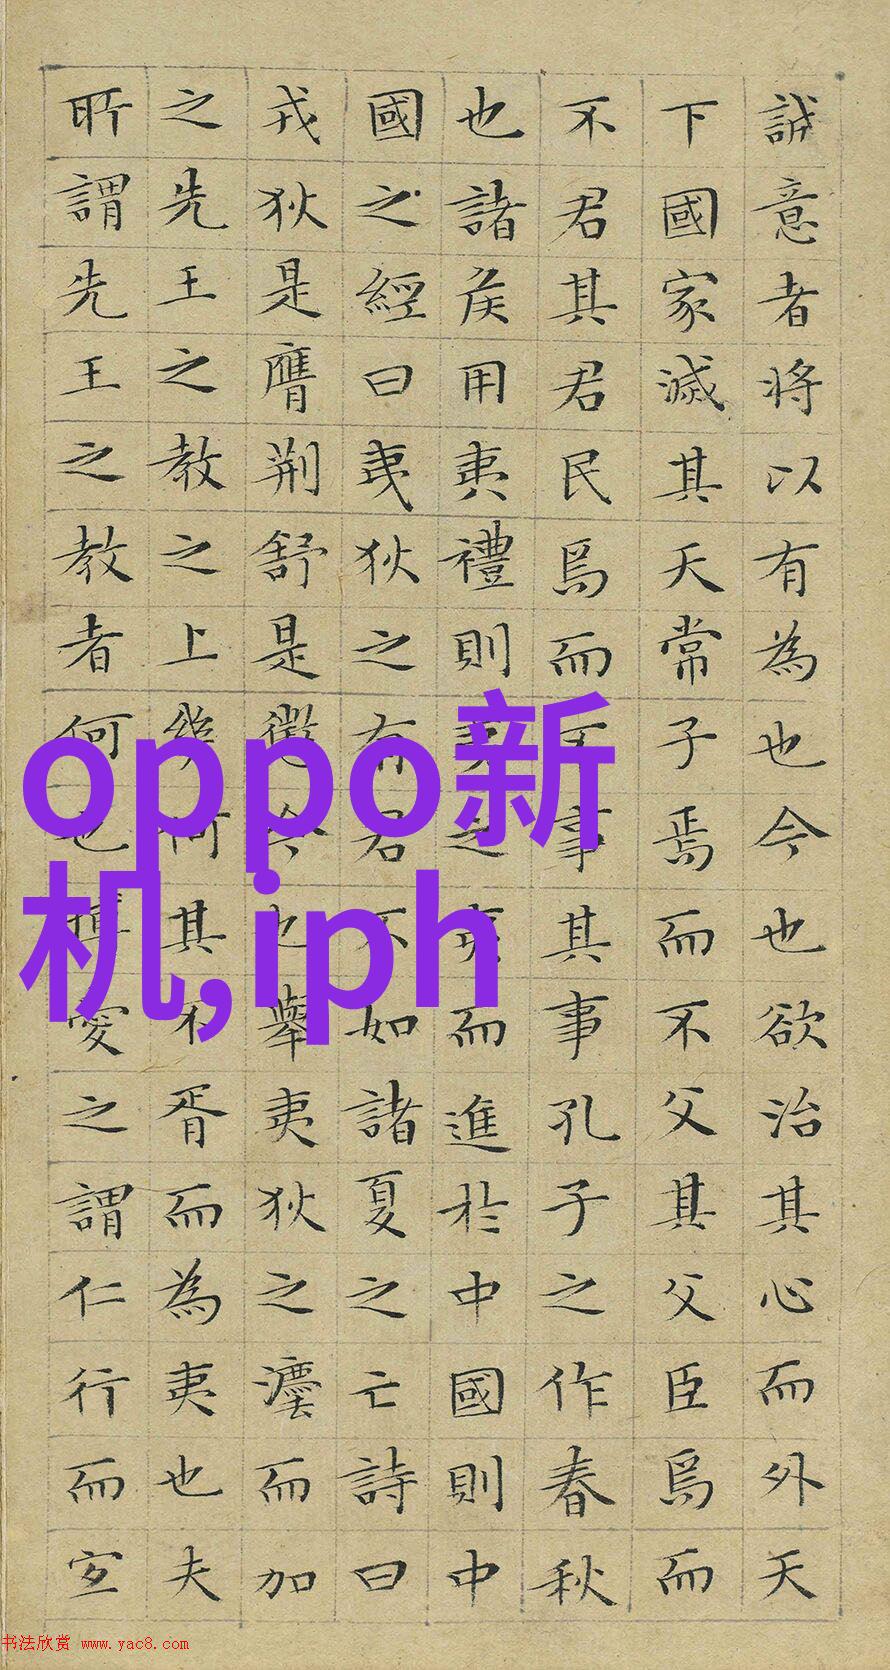 誠意者将以有為也今也欲治其心而外天
下國家滅其天常子焉而不父其父臣焉而
不君其君民焉而不事其事孔子之作春秋
也諸侯用夷禮則夷之夷而進於中國則中
國之經曰夷狄之有君不如諸夏之亡詩曰
戎狄是膺荆舒是懲今也舉夷狄之灋而加
之先王之教之上幾何其不胥而為夷也夫
所謂先王之教者何也博愛之謂仁行而宜
oppo新
机,iph
书法欣赏 www.yac8.com